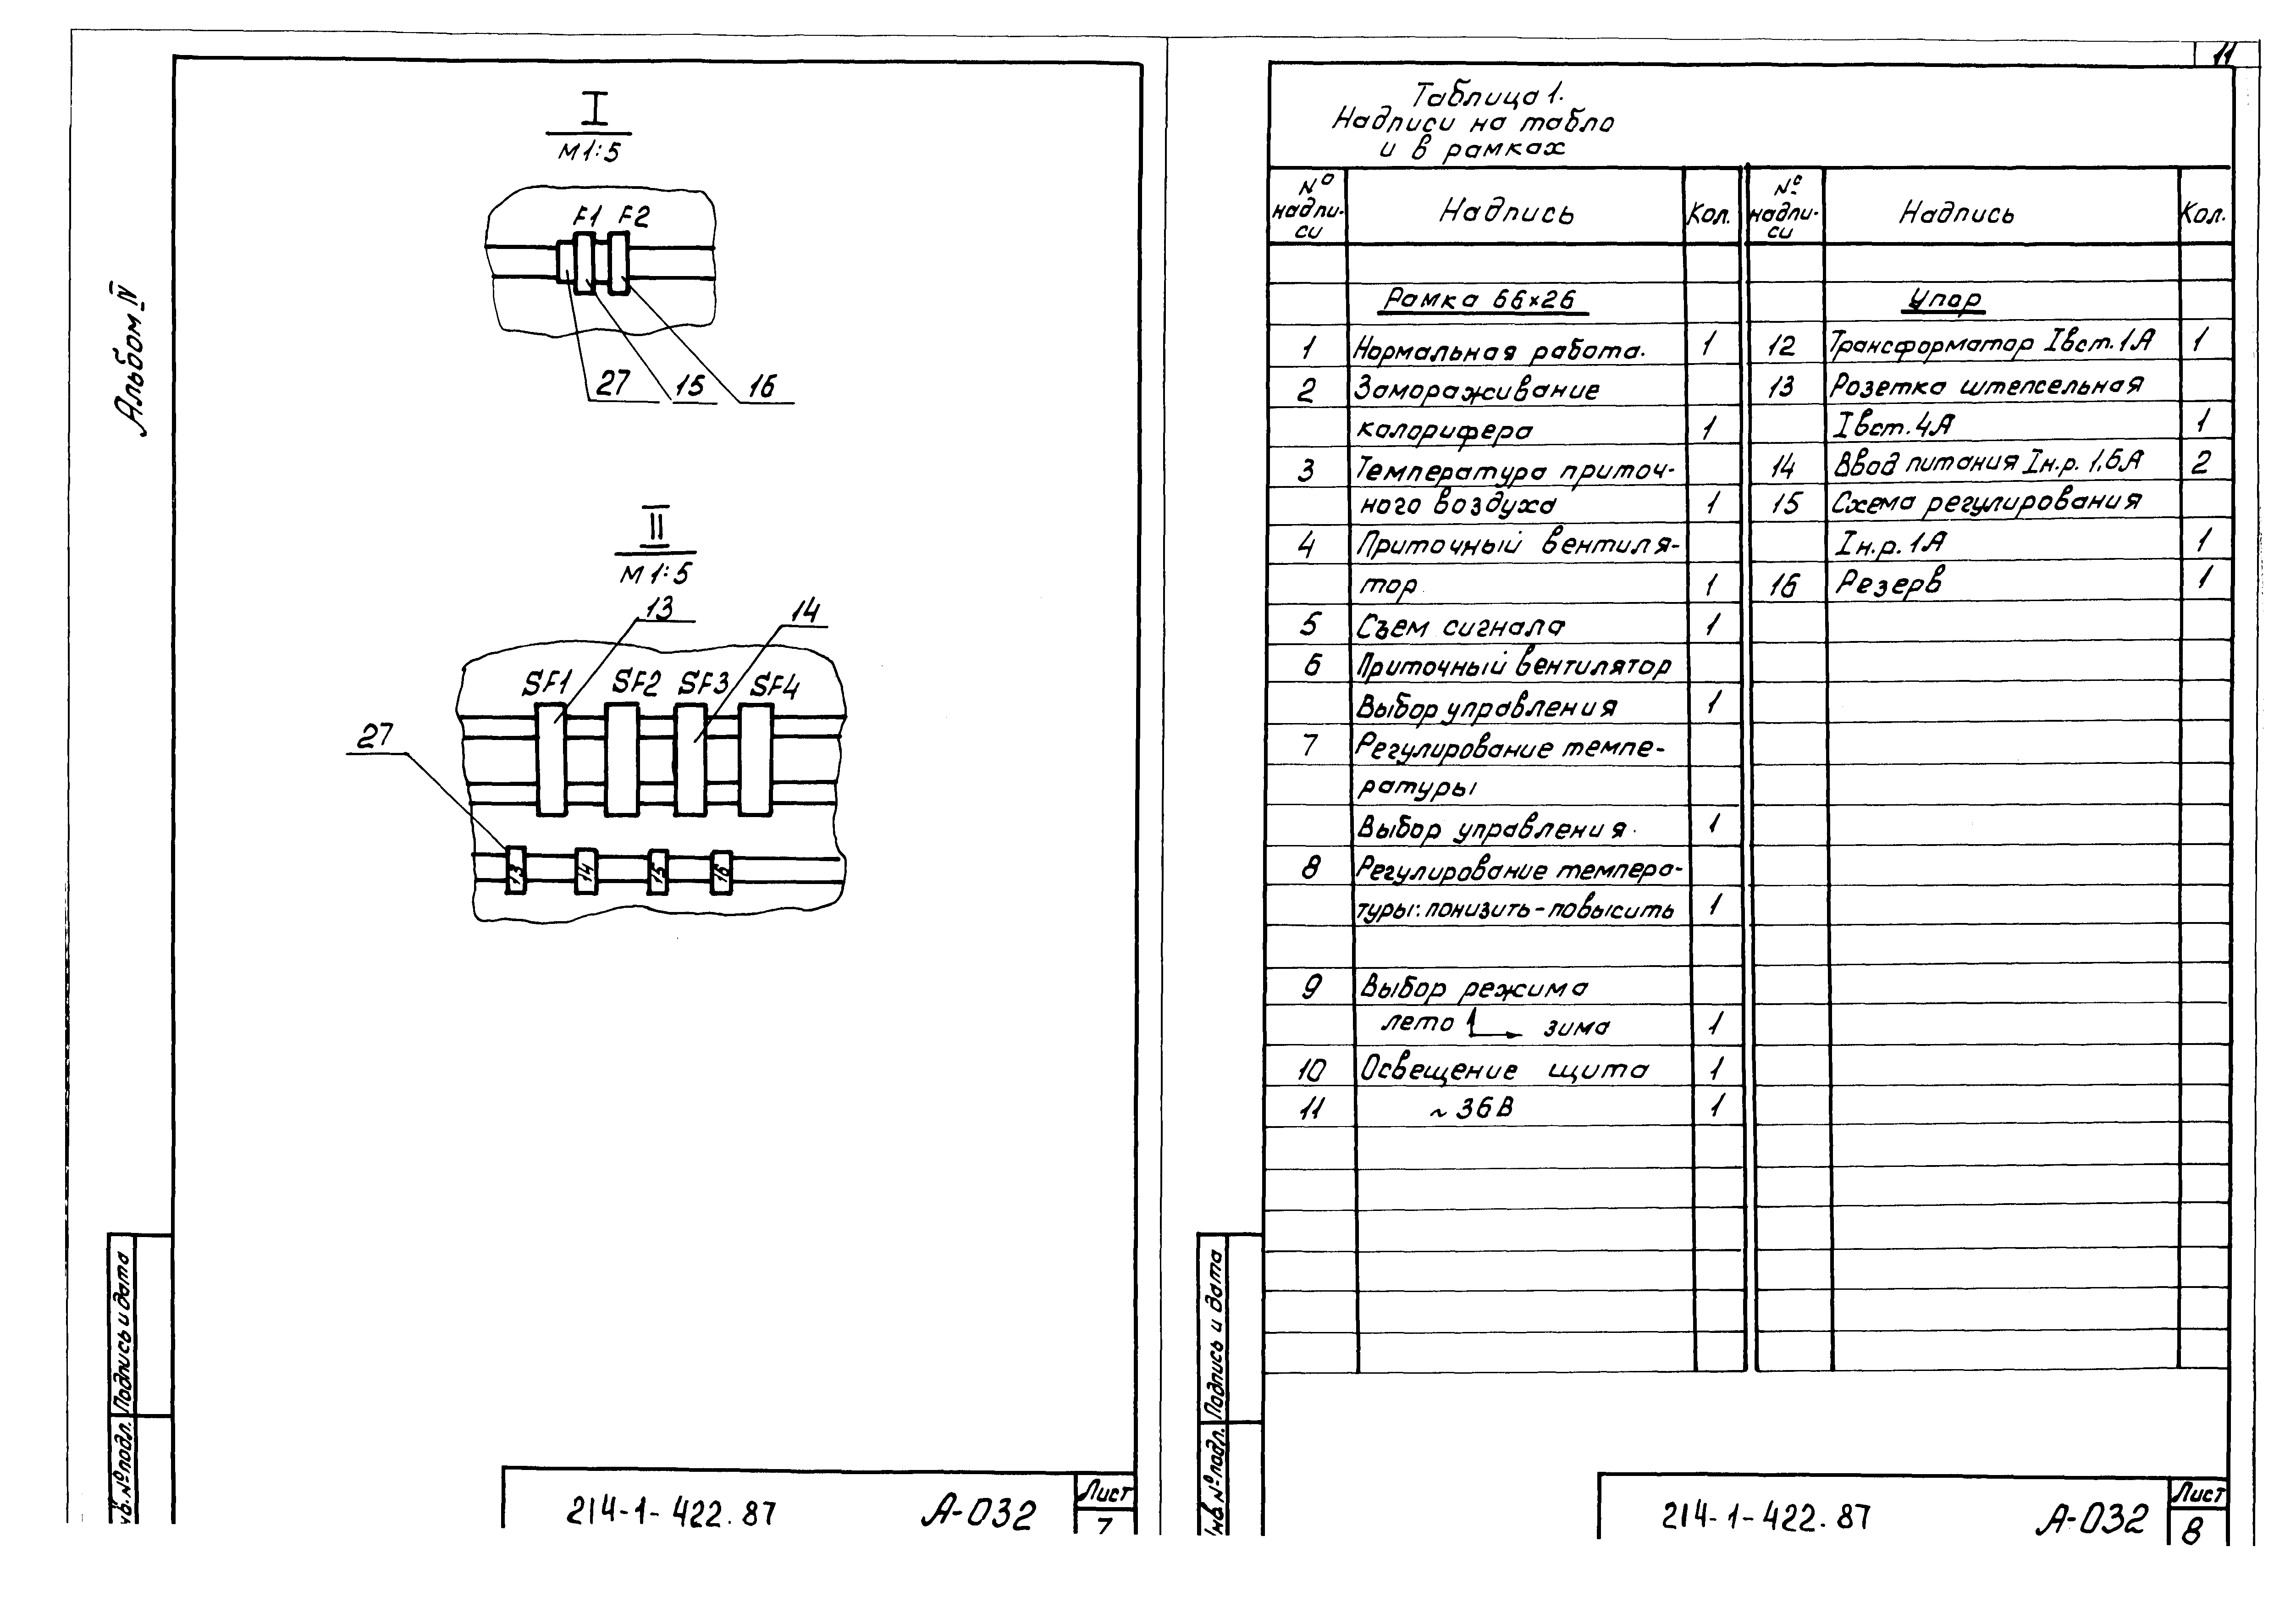 Альбом IV
I
М 1:5
F1 F2
27 15 16
II
М 1:5
13 14
SF1 SF2 SF3 SF4
27
13 14 15 16
Подпись и дата
Инв. № подл.
214-1-422.87 А-032
Лист
7
11
Таблица 1.
Надписи на табло
и в рамках
№ надпи-си Надпись Кол. № надпи-си Надпись Кол.
Рамка 66×26 Упор
1 Нормальная работа. 1 12 Трансформатор Iвст. 1А 1
2 Замораживание 13 Розетка штепсельная
калорифера 1 Iвст. 4А 1
3 Температура приточ- 14 Ввод питания Iн.р. 1,6А 2
ного воздуха 1 15 Схема регулирования
4 Приточный вентиля- Iн.р. 1А 1
тор 1 16 Резерв 1
5 Съем сигнала 1
6 Приточный вентилятор
Выбор управления 1
7 Регулирование темпе-
ратуры
Выбор управления. 1
8 Регулирование темпера-
туры: понизить-повысить 1
9 Выбор режима
лето зима 1
10 Освещение щита 1
11 ~36В 1
Подпись и дата
Инв. № подл.
214-1-422.87 А-032
Лист
8